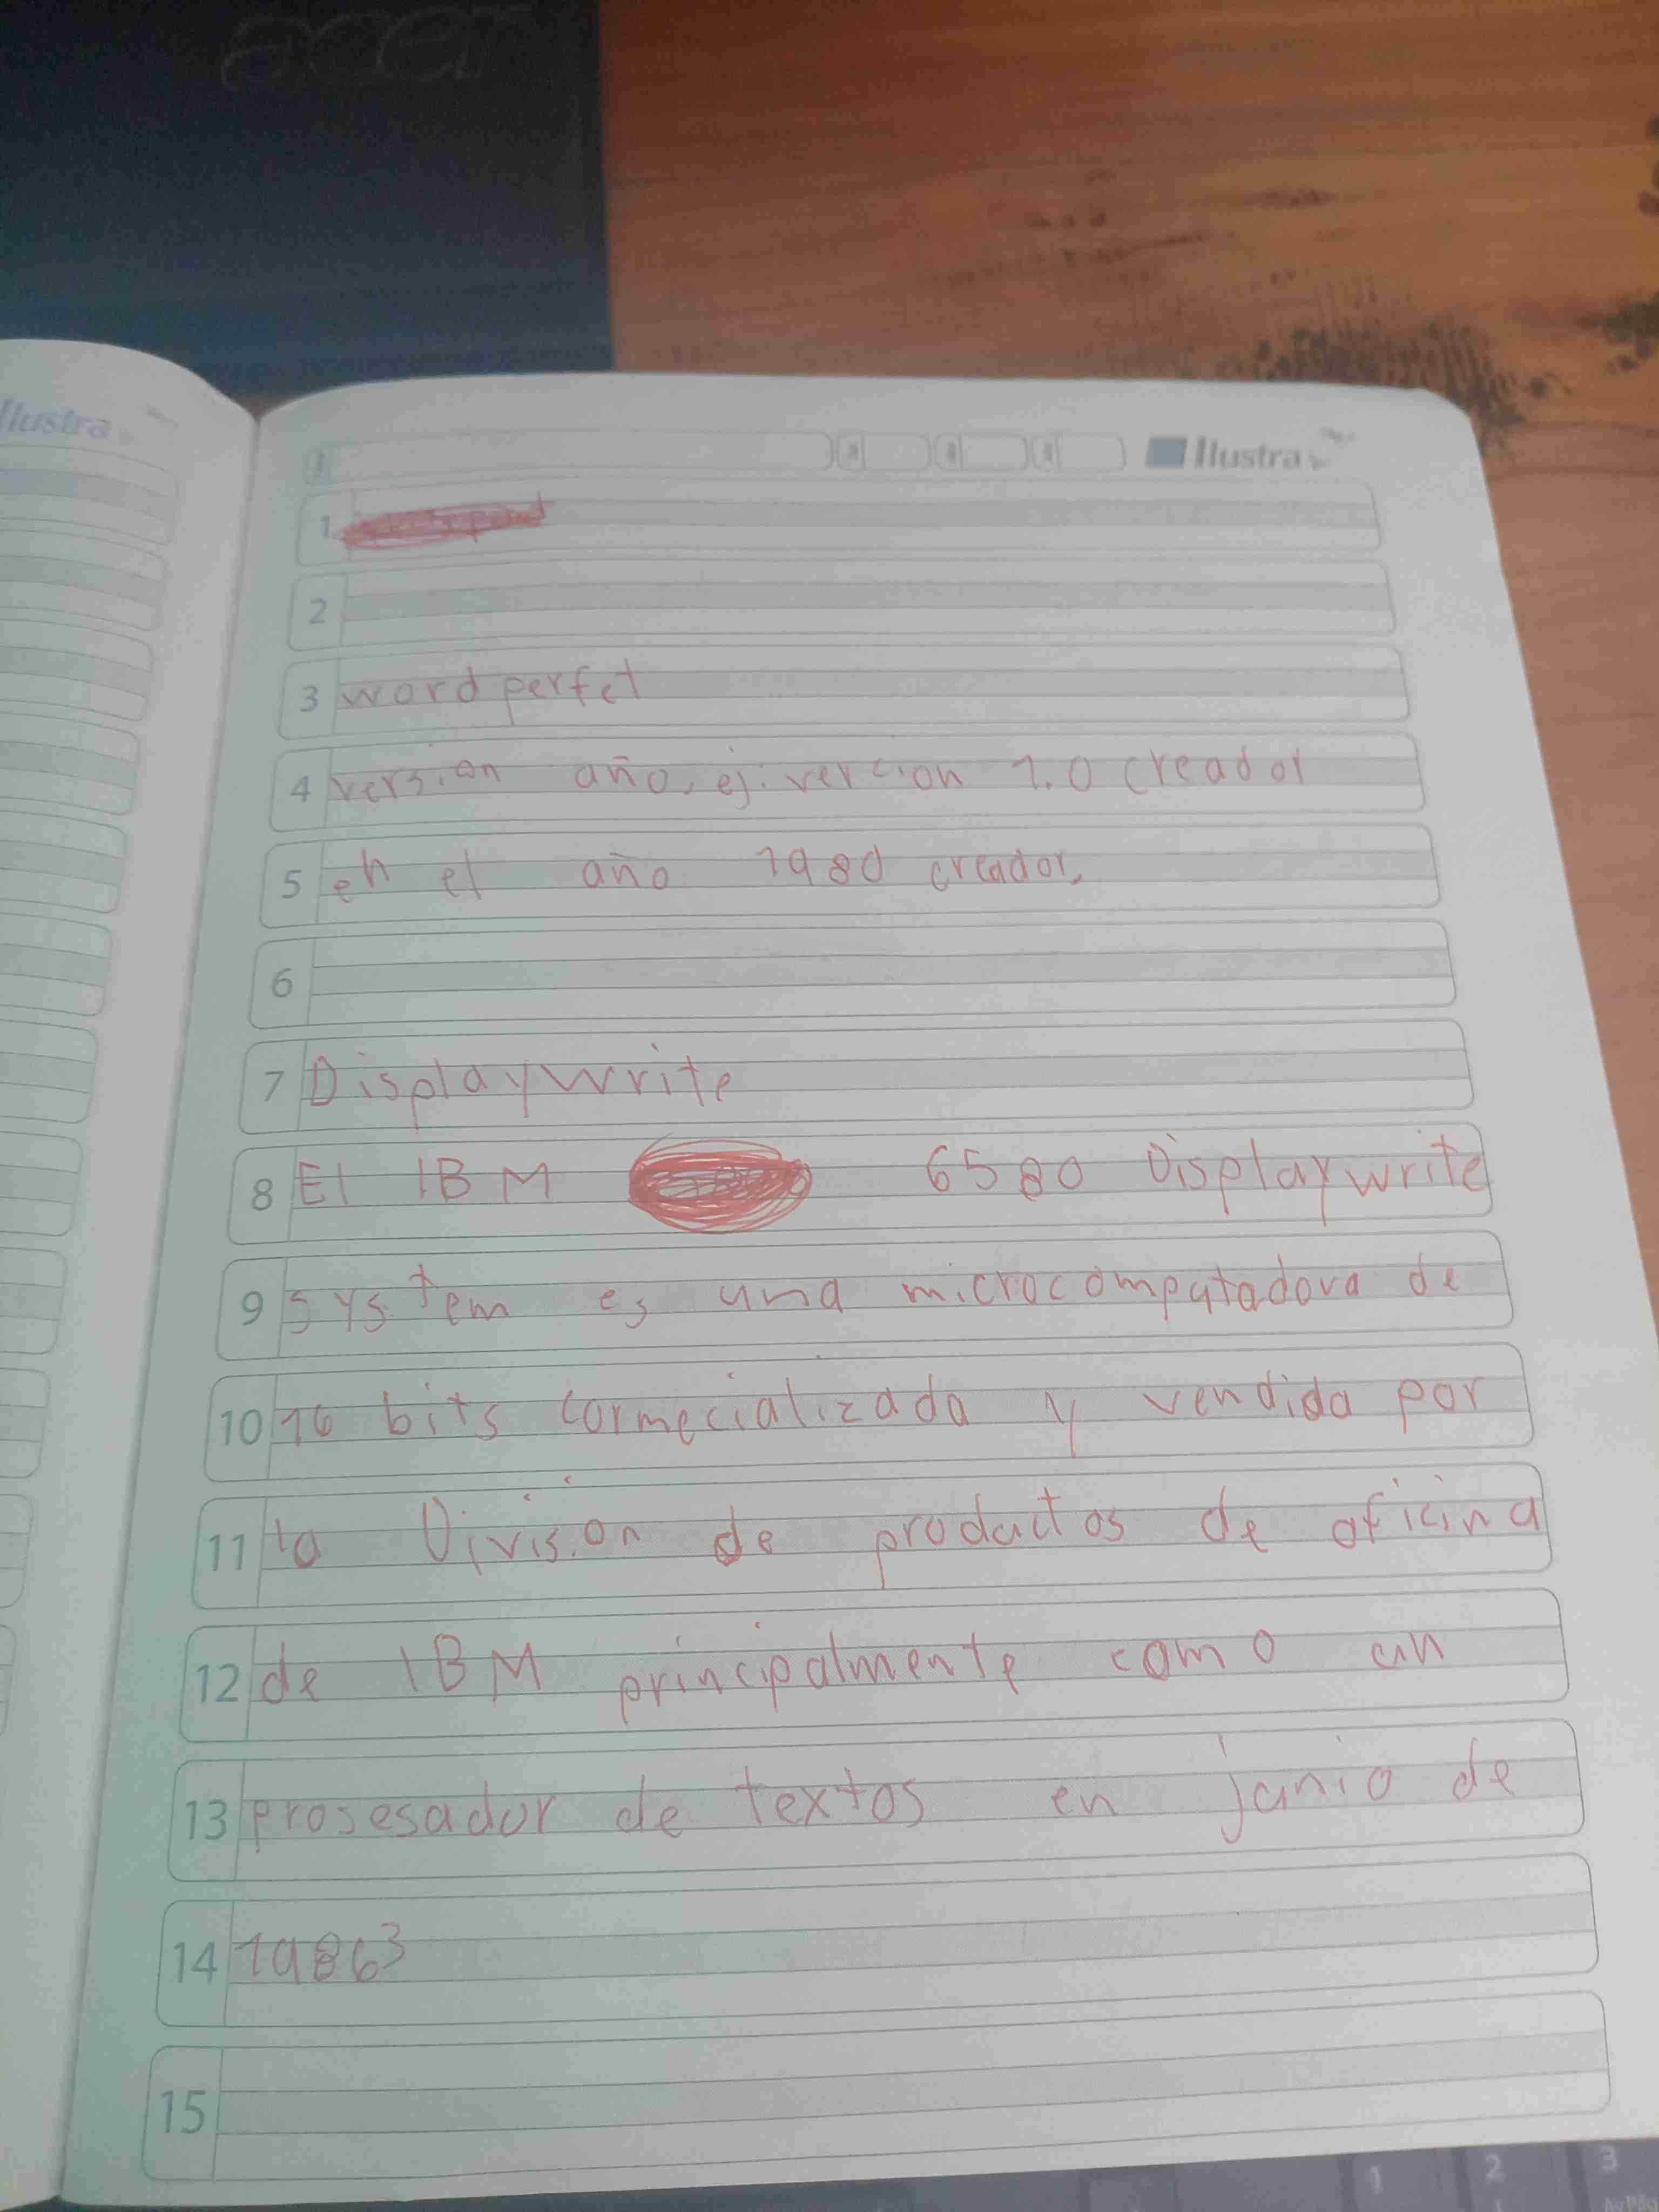 acer
llustra
Ilustra
1
2
3 word perfet
4 version año, ej: vercion 1.0 creador
5 en el año 1980 creador,
6
7 Displaywrite
8 El IBM 6580 Displaywrite
9 system es una microcomputadora de
10 16 bits cormecializada y vendida por
11 la Division de productos de oficina
12 de IBM principalmente como un
13 prosesador de textos en junio de
14 19863
15
1 2 3